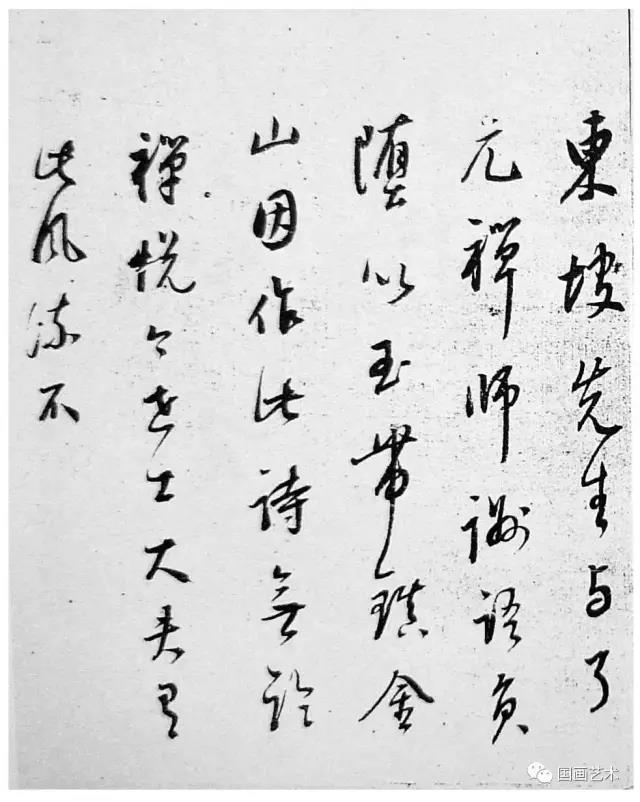 東坡先生与了
元禪师詶語負
墮以玉帶鎮金
山因作此詩無論
禪悅今世士大夫有
此風流不
国画艺术